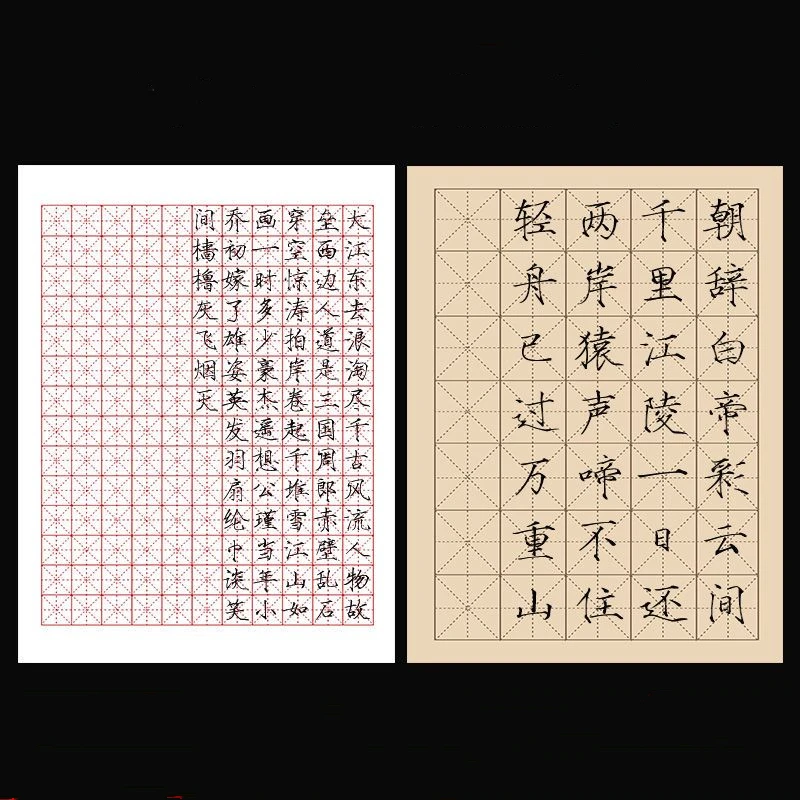 大江东去浪淘尽千古风流人物故
垒西边人道是三国周郎赤壁乱石
穿空惊涛拍岸卷起千堆雪江山如
画一时多少豪杰遥想公瑾当年小
乔初嫁了雄姿英发羽扇纶巾谈笑
间樯橹灰飞烟灭
朝辞白帝彩云间
千里江陵一日还
两岸猿声啼不住
轻舟已过万重山